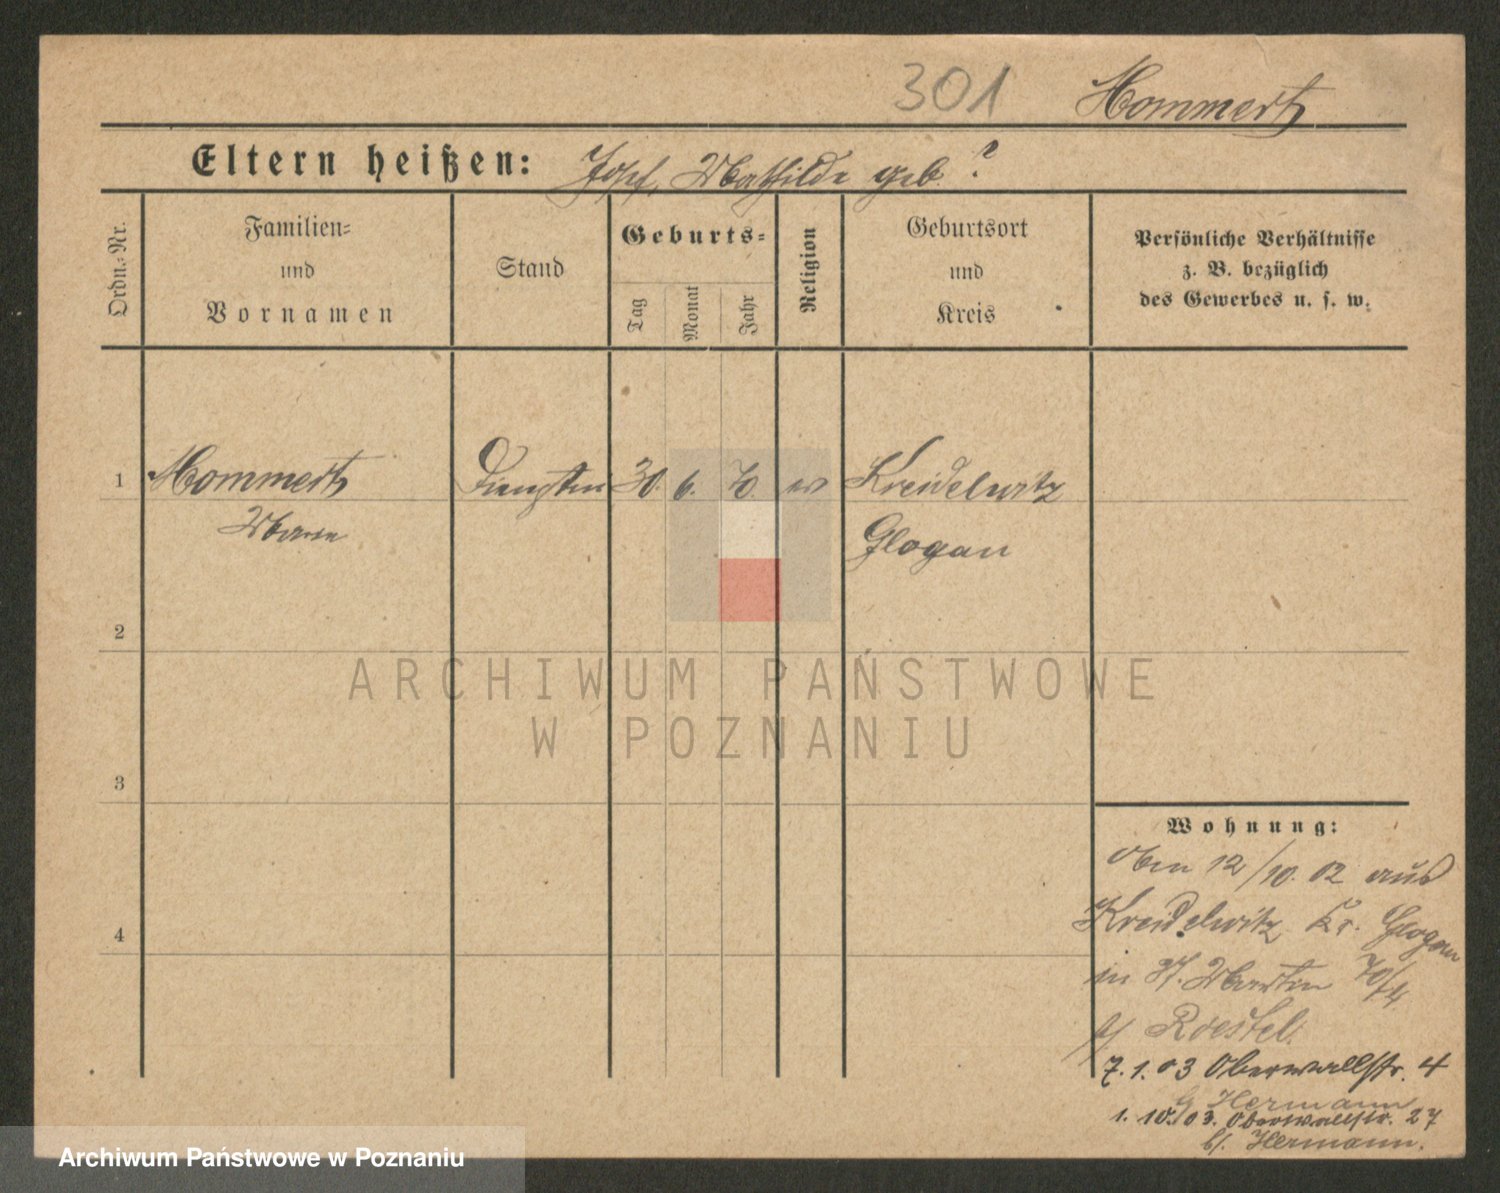 301 Hommert
Eltern heißen: Josef, Mathilde geb. ?
Ordn.-Nr.
Familien=
und
Vornamen
Stand
Geburts=
Tag
Monat
Jahr
Religion
Geburtsort
und
Kreis
Persönliche Verhältnisse
z. B. bezüglich
des Gewerbes u. s. w.
1 Hommert 30. 6. 70. ev Kreidelwitz
Marie Glogau
2
3
4
ARCHIWUM PAŃSTWOWE
W POZNANIU
Wohnung:
12/10. 02 aus
Kreidelwitz Kr. Glogau
in St. Martin 70/74
b/ Roestel.
7. 1. 03 Oberwallstr. 4
b/ Hermann
1. 10. 03. Oberwallstr. 27
b/. Hermann.
Archiwum Państwowe w Poznaniu